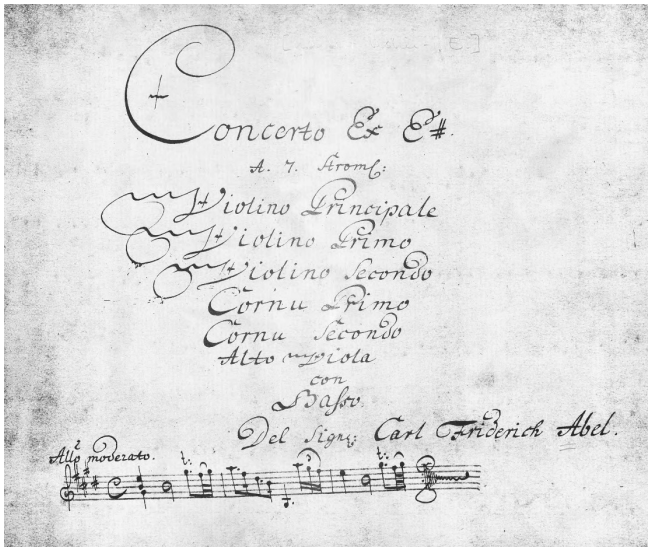 Concerto Ex E#.
A. 7. Strom:
Violino Principale
Violino Primo
Violino Secondo
Cornu Primo
Cornu Secondo
Alto Viola
con
Basso
Del Sigre: Carl Friderich Abel.
Allo moderato.